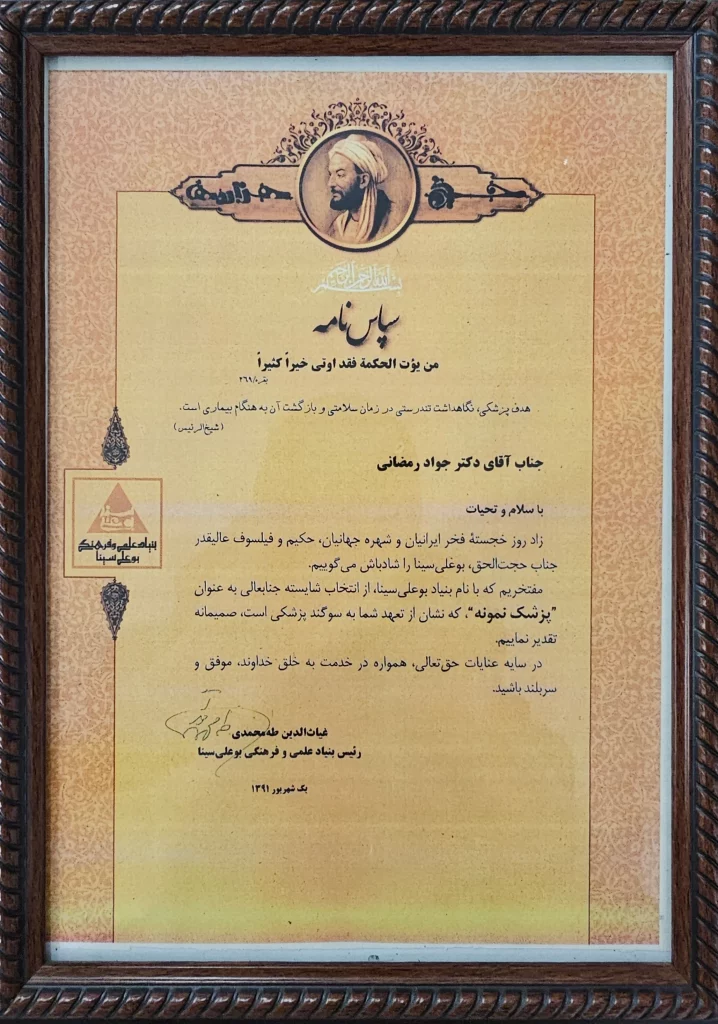 بسم الله الرحمن الرحیم
سپاس نامه
من یؤت الحکمة فقد اوتی خیراً کثیراً
بقره/۲۶۹
هدف پزشکی، نگاهداشت تندرستی در زمان سلامتی و بازگشت آن به هنگام بیماری است.
(شیخ‌الرئیس)
جناب آقای دکتر جواد رمضانی
با سلام و تحیات
زاد روز خجستهٔ فخر ایرانیان و شهره جهانیان، حکیم و فیلسوف عالیقدر
جناب حجت‌الحق، بوعلی‌سینا را شادباش می‌گوییم.
مفتخریم که با نام بنیاد بوعلی‌سینا، از انتخاب شایسته جنابعالی به عنوان
”پزشک نمونه“، که نشان از تعهد شما به سوگند پزشکی است، صمیمانه
تقدیر نماییم.
در سایه عنایات حق‌تعالی، همواره در خدمت به خلق خداوند، موفق و
سربلند باشید.
غیاث‌الدین طه‌محمدی
رئیس بنیاد علمی و فرهنگی بوعلی‌سینا
یک شهریور ۱۳۹۱
بنیاد علمی و فرهنگی
بوعلی سینا